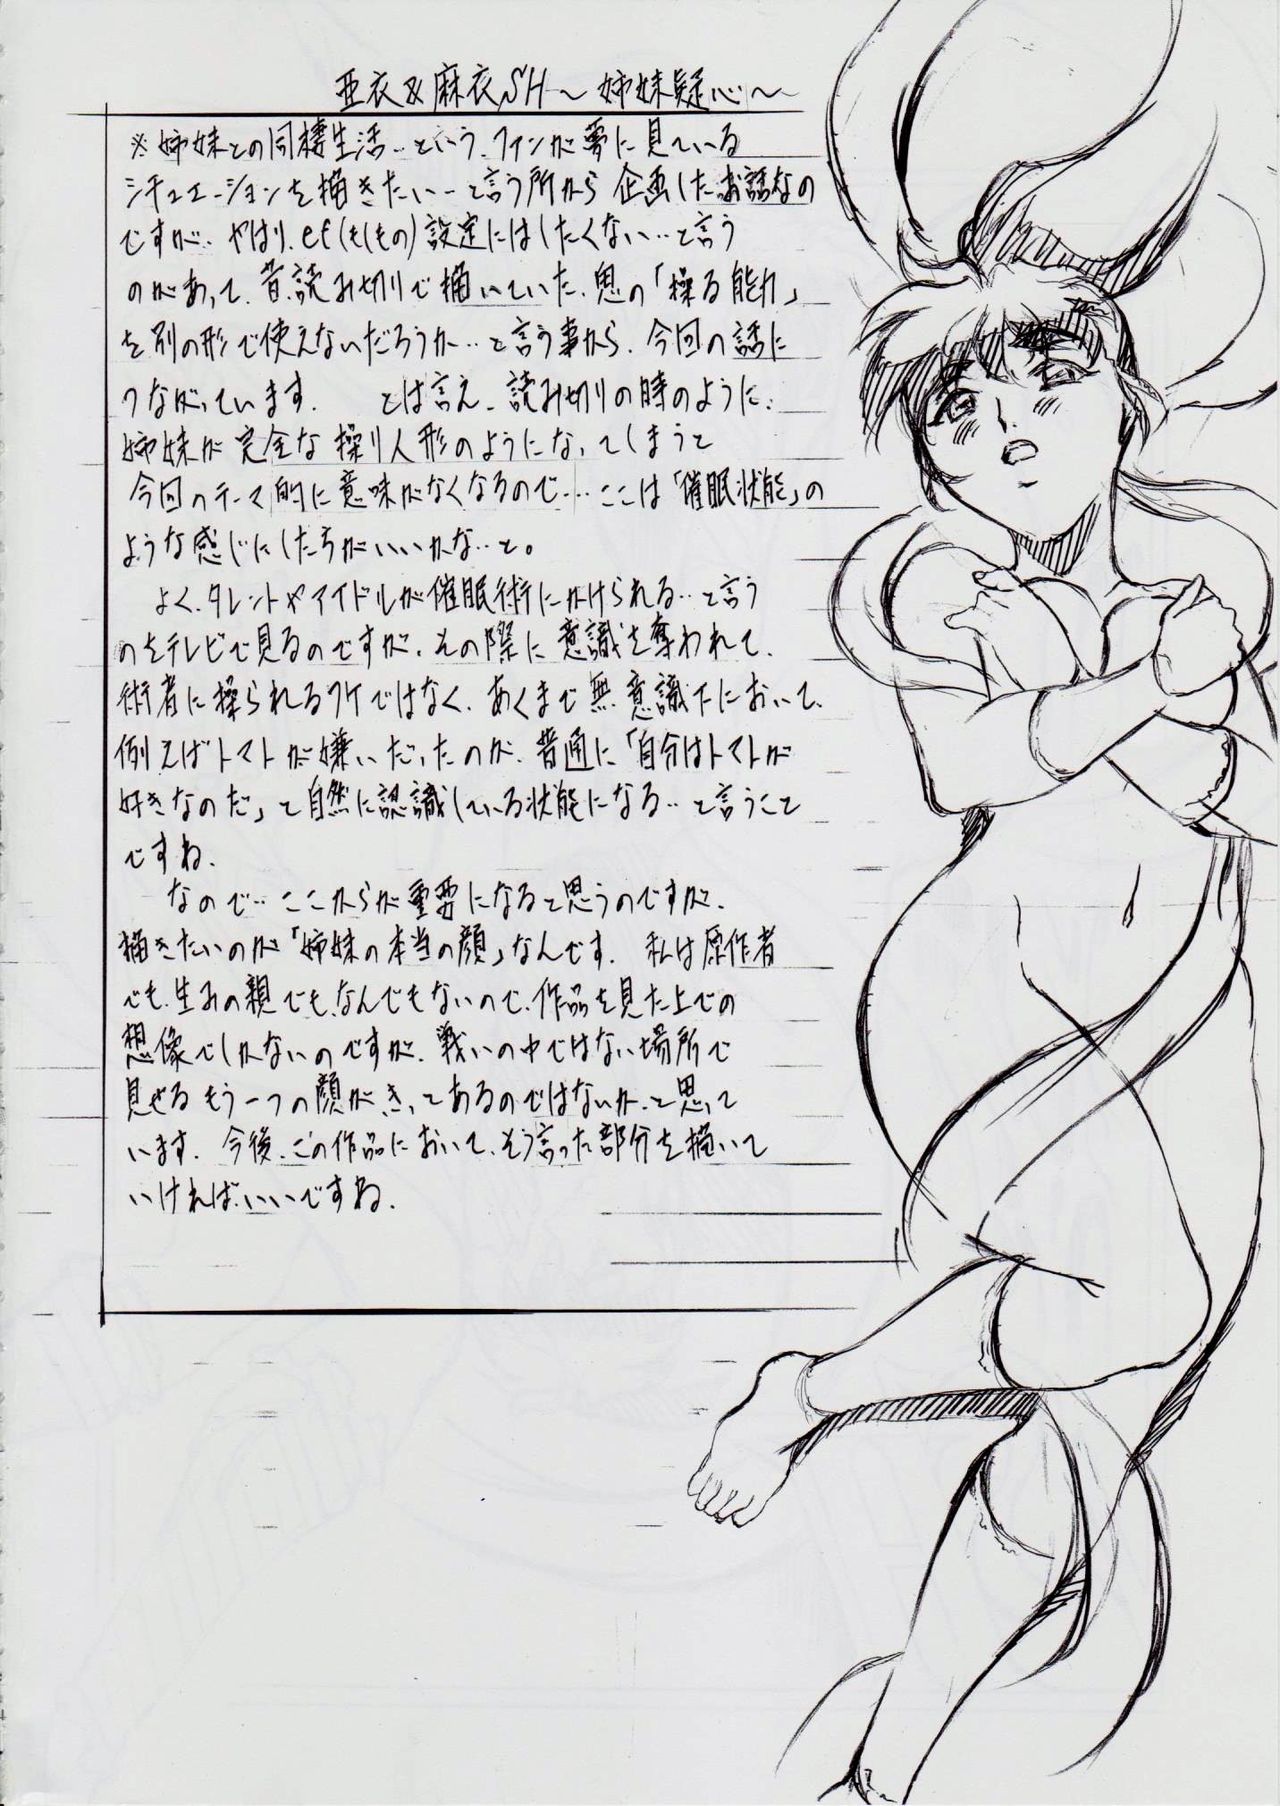 亜衣&麻衣SH〜姉妹疑心〜
※姉妹との同棲生活‥と言う、ファンが夢に見ている
シチュエーションを描きたい‥と言う所から 企画したお話なの
ですが‥やはり、if(もしもの)設定にはしたくない‥と言う
のがあって、昔、読み切りで描いていた、鬼の「操る能力」
を別の形で使えないだろうか‥と言う事から、今回の話に
つながっています。 とは言え、読み切りの時のように、
姉妹が完全な操り人形のようになってしまうと
今回のテーマ的に意味がなくなるので‥‥ここは「催眠状態」の
ような感じにしたらがいいかな‥と。
よく、タレントやアイドルが催眠術にかけられる‥と言う
のをテレビで見るのですが、その際に意識を奪われて、
術者に操られるワケではなく、あくまで無意識下において、
例えばトマトが嫌いだったのが、普通に「自分はトマトが
好きなのだ」と自然に認識している状態になる‥と言うこと
ですね。
なので‥ここからが重要になると思うのですが、
描きたいのが「姉妹の本当の顔」なんです。 私は原作者
でも、生みの親でも、なんでもないので、作品を見た上での
想像でしかないのですが、戦いの中ではない場所で
見せるもう一つの顔がきっとあるのではないか、と思って
います。 今後、この作品において、そう言った部分を描いて
いければ、いいですね。